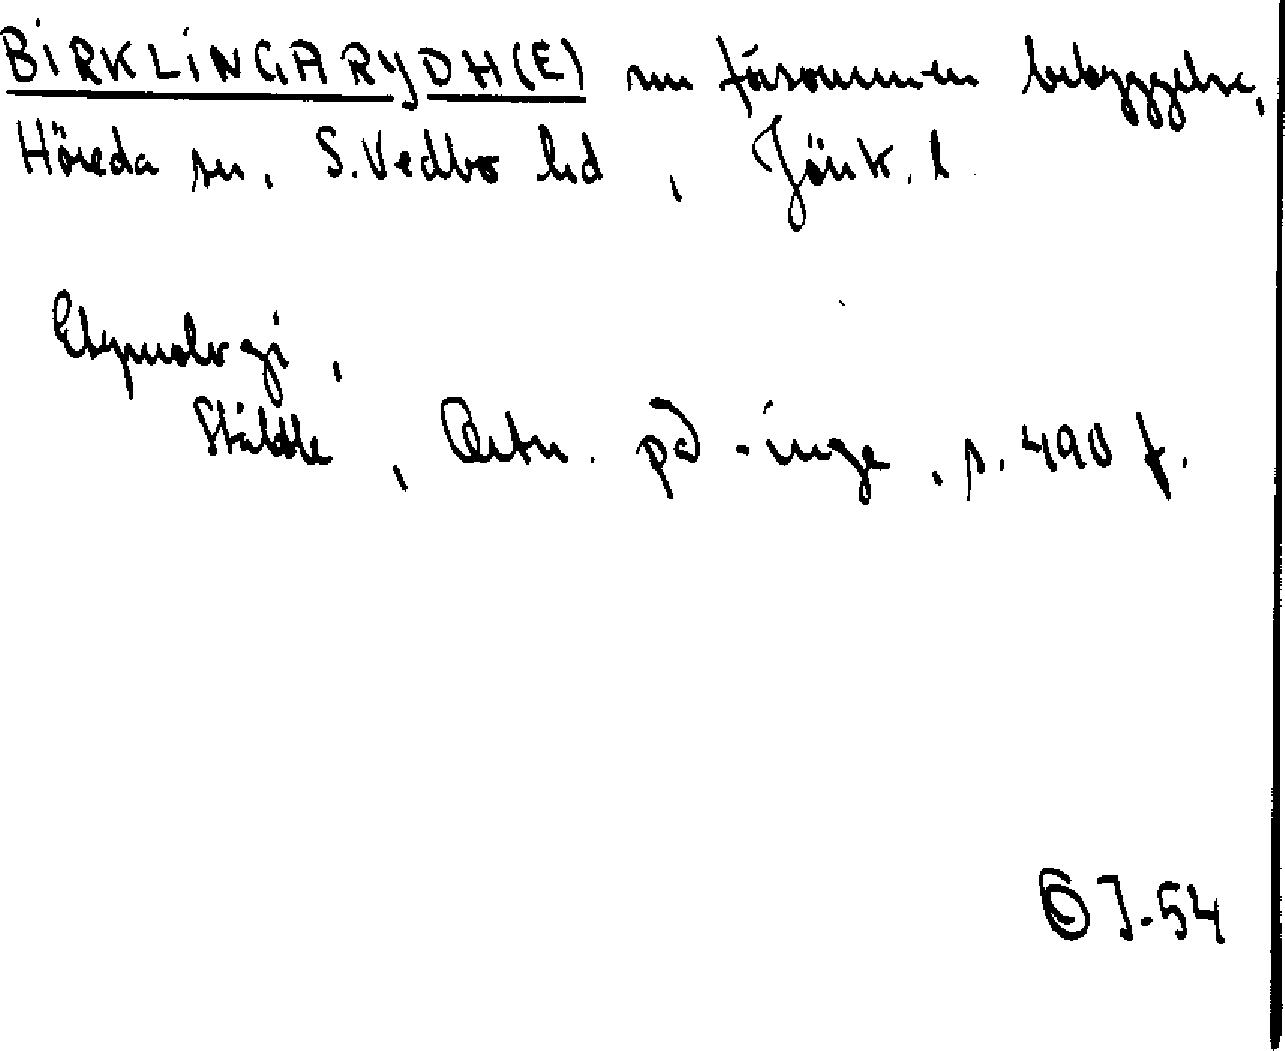 BIRKLINGARYDH(E) nu försvunnen bebyggelse,
Höreda sn, S. Vedbo hd, Jönk. l
Etymologi,
Ståhle, Ortn. på -inge, s. 490 f.
J-54